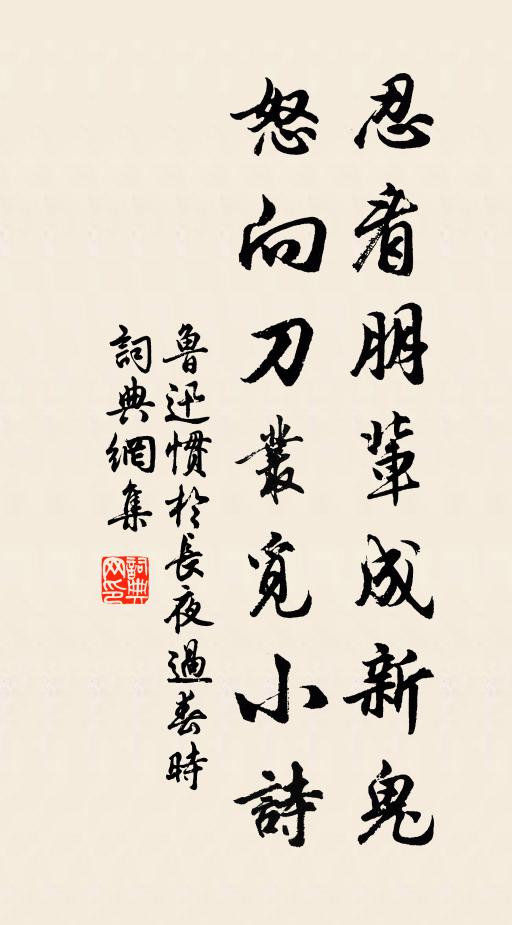 忍看朋輩成新鬼
怒向刀叢覓小詩
魯迅慣於長夜過春時
詞典網集
詞典网印